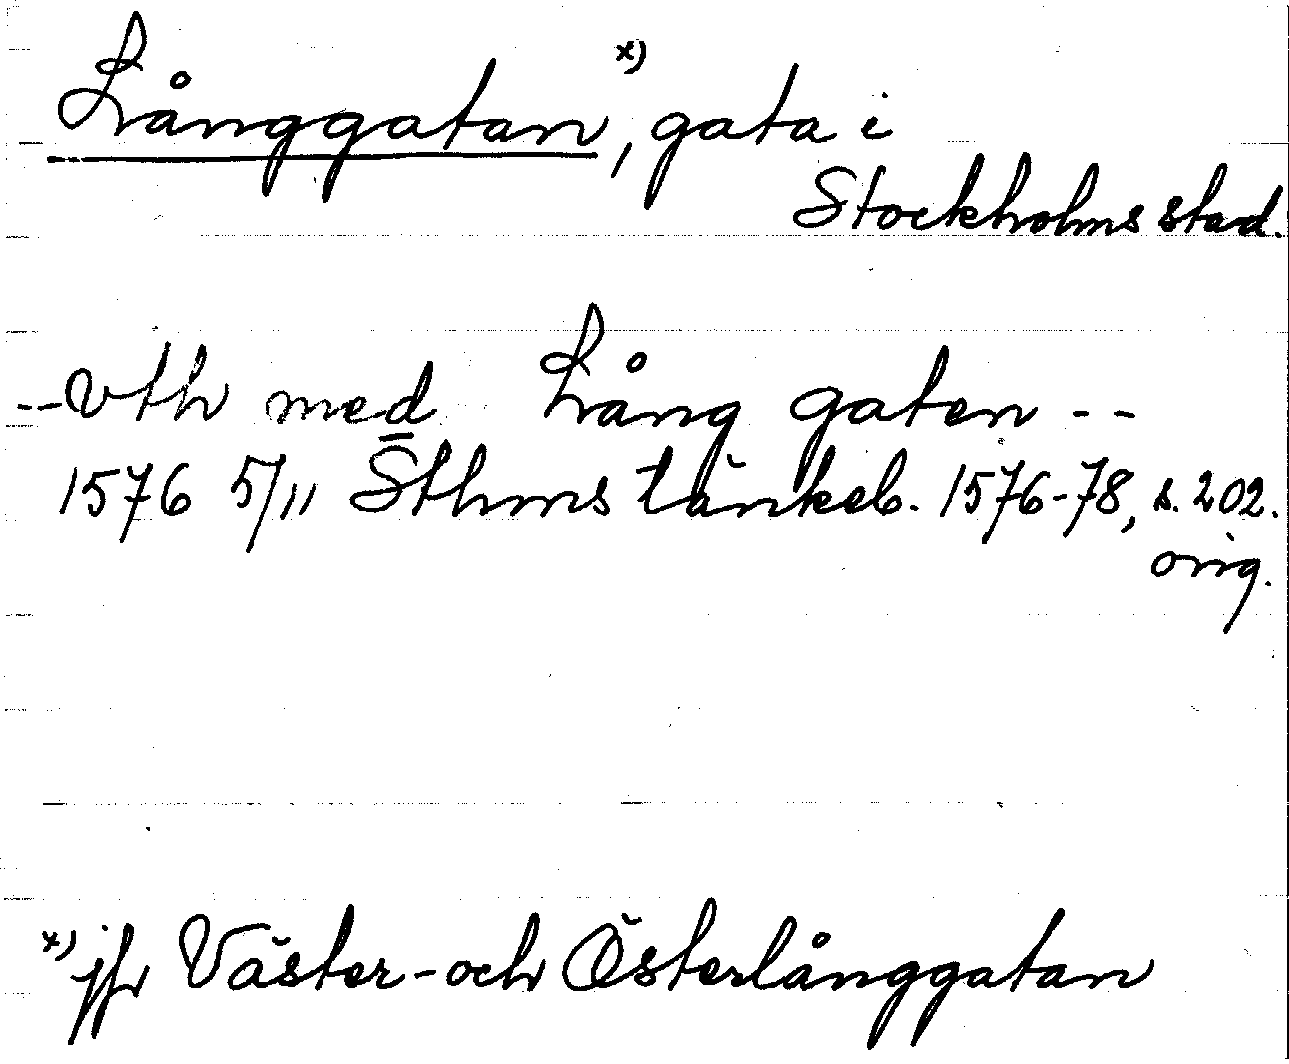 Långgatan x), gata i
Stockholms stad.
-- vth med Lång gaten --
1576 5/11 Sthms tänkeb. 1576-78, s. 202.
orig.
x) jfr Väster- och Österlånggatan